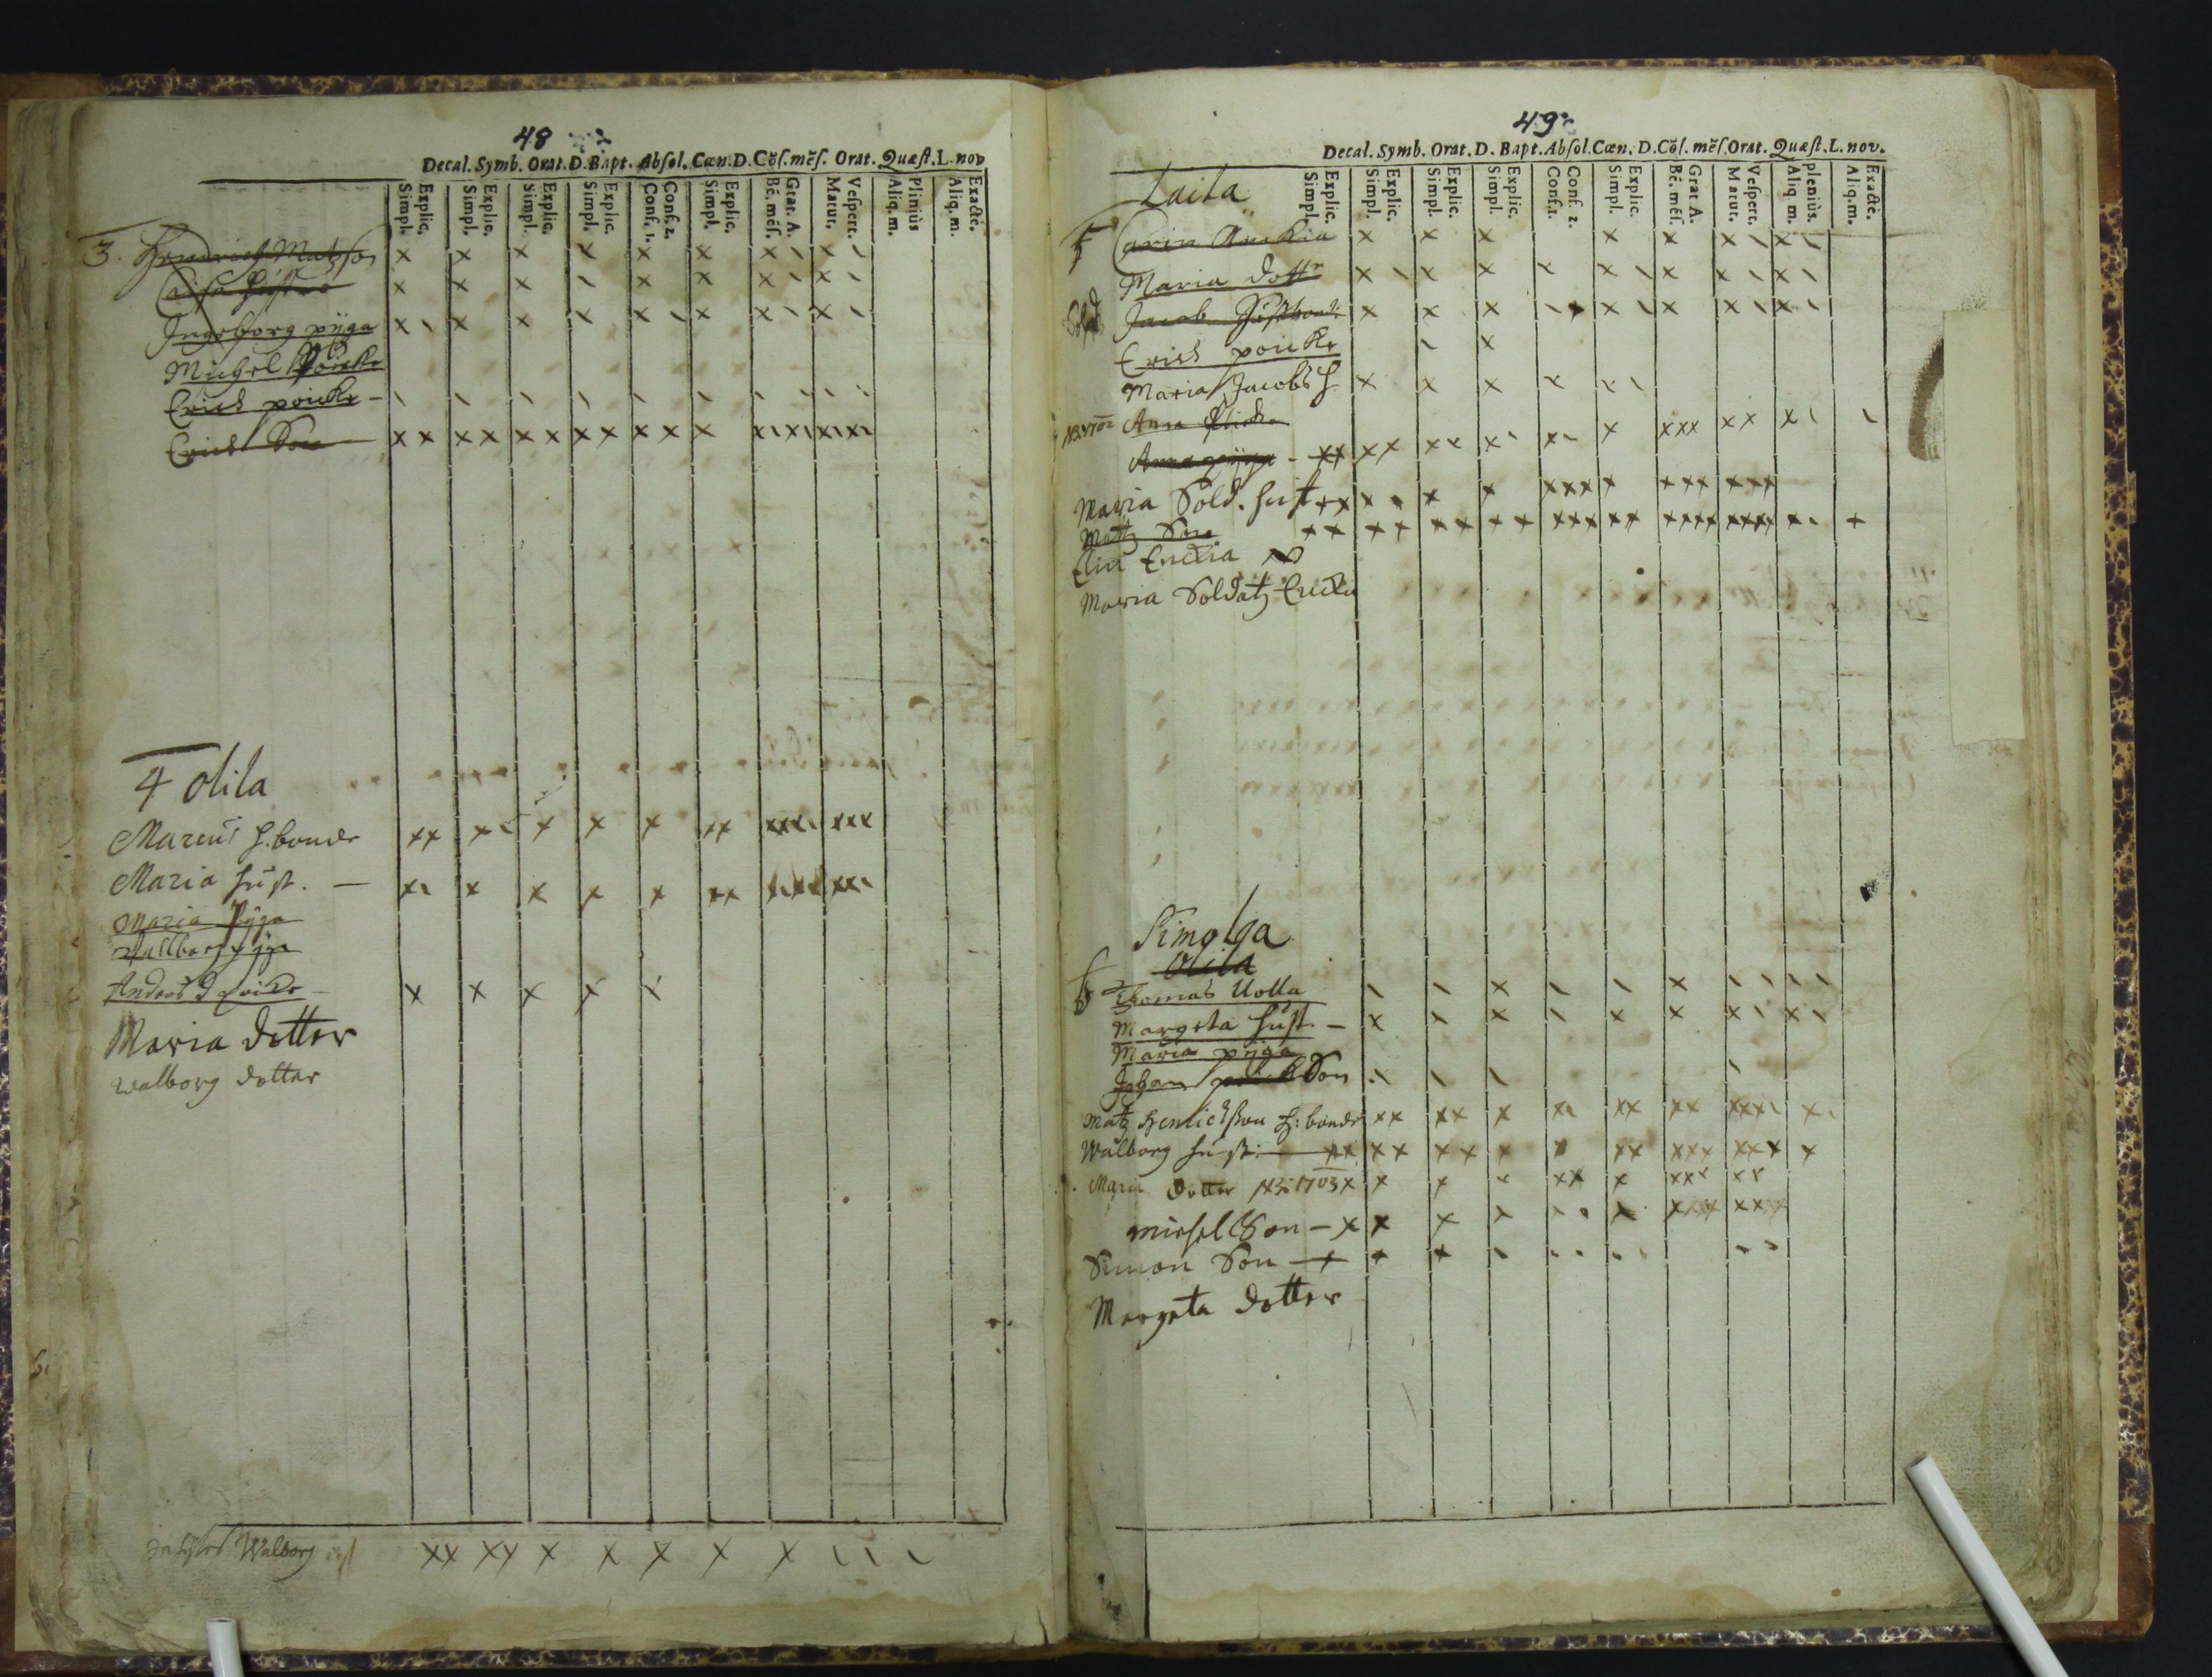 48
Decal. Symb. Orat. D. Bapt. Absol. Cœn. D. Cõs. mẽs. Orat. Quæst. L. nov
Explic. Simpl. Explic. Simpl. Explic. Simpl. Explic. Simpl. Conf. 2. Conf. 1. Explic. Simpl. Grat. A. Bẽ. mẽs. Vespert. Matut. Pliniùs Aliq. m. Exactè. Aliq. m.
3. Hendrich Matsson
Ingeborg pijga
Michel Poicke
Erich poicke
Erich Son
4 Olila
Marcus h.bonde
Maria hust.
Maria Pijga
Wallborg Pijga
Anders Poicke
Maria dotter
walborg dotter
Walborg
49
Decal. Symb. Orat. D. Bapt. Absol. Cœn. D. Cõs. mẽs. Orat. Quæst. L. nov.
Explic. Simpl. Explic. Simpl. Explic. Simpl. Explic. Simpl. Conf. 2. Conf. 1. Explic. Simpl. Grat. A. Bẽ. mẽs. Vespert. Matut. pleniùs. Aliq. m. Exactè. Aliq. m.
Laila
5 Carin Enckia
Maria dottr
Jacob Husbonde
Erich poicke
Maria Jacobs h
Anna
Anna pijga
Maria Sold. hust
Matz Son
Elin Enckia
Maria Soldatz Enckia
Simolga
Olila
6 Thomas Uolla
Margeta hust
Maria pijga
Johan Son
Matz Henrichsson h: bonde
Walborg hust:
Maria dotter NB: 1703
Michel Son
Simon Son
Margeta dotter